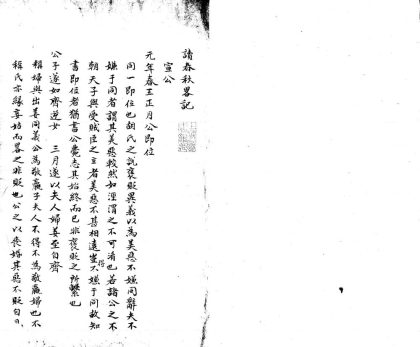 讀春秋畧記
宣公
元年春王正月公即位
同一即位也胡氏之說褒貶異義以為美惡不嫌同辭夫不
嫌于同者謂其美惡較然如涇渭之不可淆也若諸公之不
朝天子與受賊臣之立者美惡不甚相遠豈得不嫌于同故知
書即位者猶書公薨志其始終而已非褒貶之所繫也
公子遂如齊逆女 三月遂以夫人婦姜至自齊
稱婦與出姜同義公為敬嬴子夫人不得不為敬嬴婦也不
稱氏亦緣喪娶而畧之非貶也公之以喪婚其惡不貶自